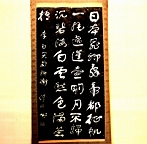 日本晁卿辭帝都征帆
一片遶蓬壺明月不歸
沉碧海白雲愁色滿蒼
梧 李白哭晁卿衡